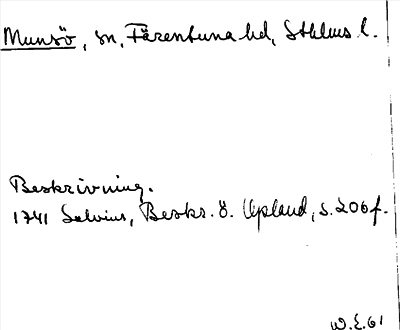 Munsö, sn, Färentuna hd, Sthlms l.
Beskrivning.
1741 Salvius, Beskr. ö. Upland, s. 206 f.
W.E.61